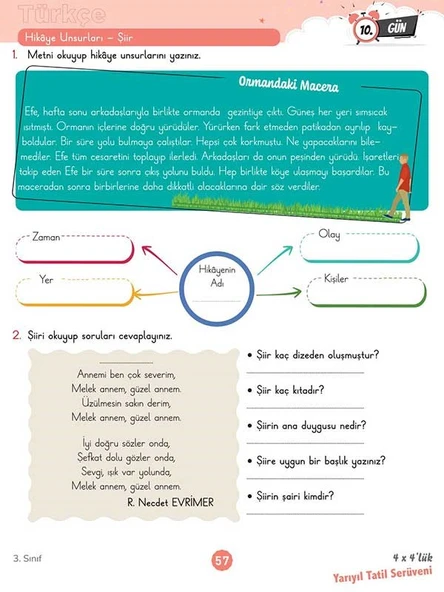 Türkçe
Hikâye Unsurları - Şiir
10. GÜN
1. Metni okuyup hikâye unsurlarını yazınız.
Ormandaki Macera
Efe, hafta sonu arkadaşlarıyla birlikte ormanda gezintiye çıktı. Güneş her yeri sımsıcak
ısıtmıştı. Ormanın içlerine doğru yürüdüler. Yürürken fark etmeden patikadan ayrılıp kay-
boldular. Bir süre yolu bulmaya çalıştılar. Hepsi çok korkmuştu. Ne yapacaklarını bile-
mediler. Efe tüm cesaretini toplayıp ilerledi. Arkadaşları da onun peşinden yürüdü. İşaretleri
takip eden Efe bir süre sonra çıkış yolunu buldu. Hep birlikte köye ulaşmayı başardılar. Bu
maceradan sonra birbirlerine daha dikkatli olacaklarına dair söz verdiler.
Zaman
Olay
Hikâyenin
Adı
Yer
Kişiler
2. Şiiri okuyup soruları cevaplayınız.
Annemi ben çok severim,
Melek annem, güzel annem.
Üzülmesin sakın derim,
Melek annem, güzel annem.
İyi doğru sözler onda,
Şefkat dolu gözler onda,
Sevgi, ışık var yolunda,
Melek annem, güzel annem.
R. Necdet EVRİMER
• Şiir kaç dizeden oluşmuştur?
• Şiir kaç kıtadır?
• Şiirin ana duygusu nedir?
• Şiire uygun bir başlık yazınız?
• Şiirin şairi kimdir?
3. Sınıf
57
4 x 4'lük
Yarıyıl Tatil Serüveni